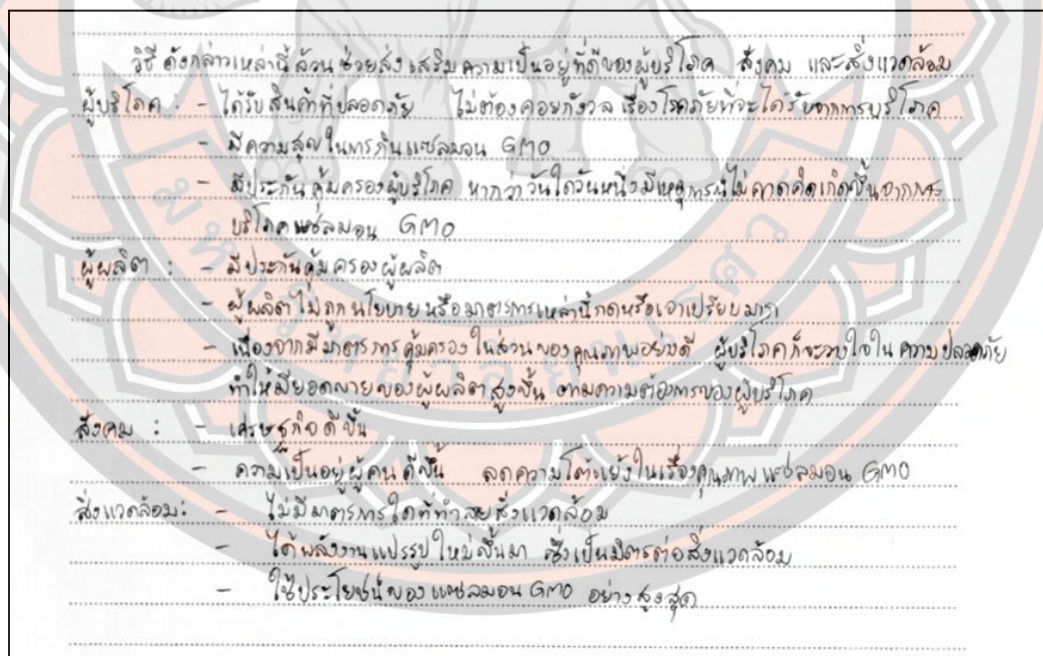 วิธีดังกล่าวเหล่านี้ล้วนช่วยส่งเสริมความเป็นอยู่ที่ดีของผู้บริโภค สังคม และสิ่งแวดล้อม
ผู้บริโภค : - ได้รับสินค้าที่ปลอดภัย ไม่ต้องคอยกังวลเรื่องโรคภัยที่จะได้รับจากการบริโภค
- มีความสุขในการกินแซลมอน GMO
- มีประกันคุ้มครองผู้บริโภค หากว่าวันใดวันหนึ่งมีเหตุการณ์ไม่คาดคิดเกิดขึ้นจากการ
บริโภคแซลมอน GMO
ผู้ผลิต : - มีประกันคุ้มครองผู้ผลิต
- ผู้ผลิตไม่ถูกนโยบายหรือมาตรการเหล่านี้กดหรือเอาเปรียบมาก
- เนื่องจากมีมาตรการคุ้มครองในส่วนของคุณภาพอย่างดี ผู้บริโภคก็จะวางใจในความปลอดภัย
ทำให้มียอดขายของผู้ผลิตสูงขึ้น ตามความต้องการของผู้บริโภค
สังคม : - เศรษฐกิจดีขึ้น
- ความเป็นอยู่ผู้คนดีขึ้น ลดความโต้แย้งในเรื่องคุณภาพแซลมอน GMO
สิ่งแวดล้อม : - ไม่มีมาตรการใดที่ทำลายสิ่งแวดล้อม
- ได้พลังงานแปรรูปใหม่ขึ้นมา ซึ่งเป็นมิตรต่อสิ่งแวดล้อม
- ใช้ประโยชน์ของแซลมอน GMO อย่างสูงสุด